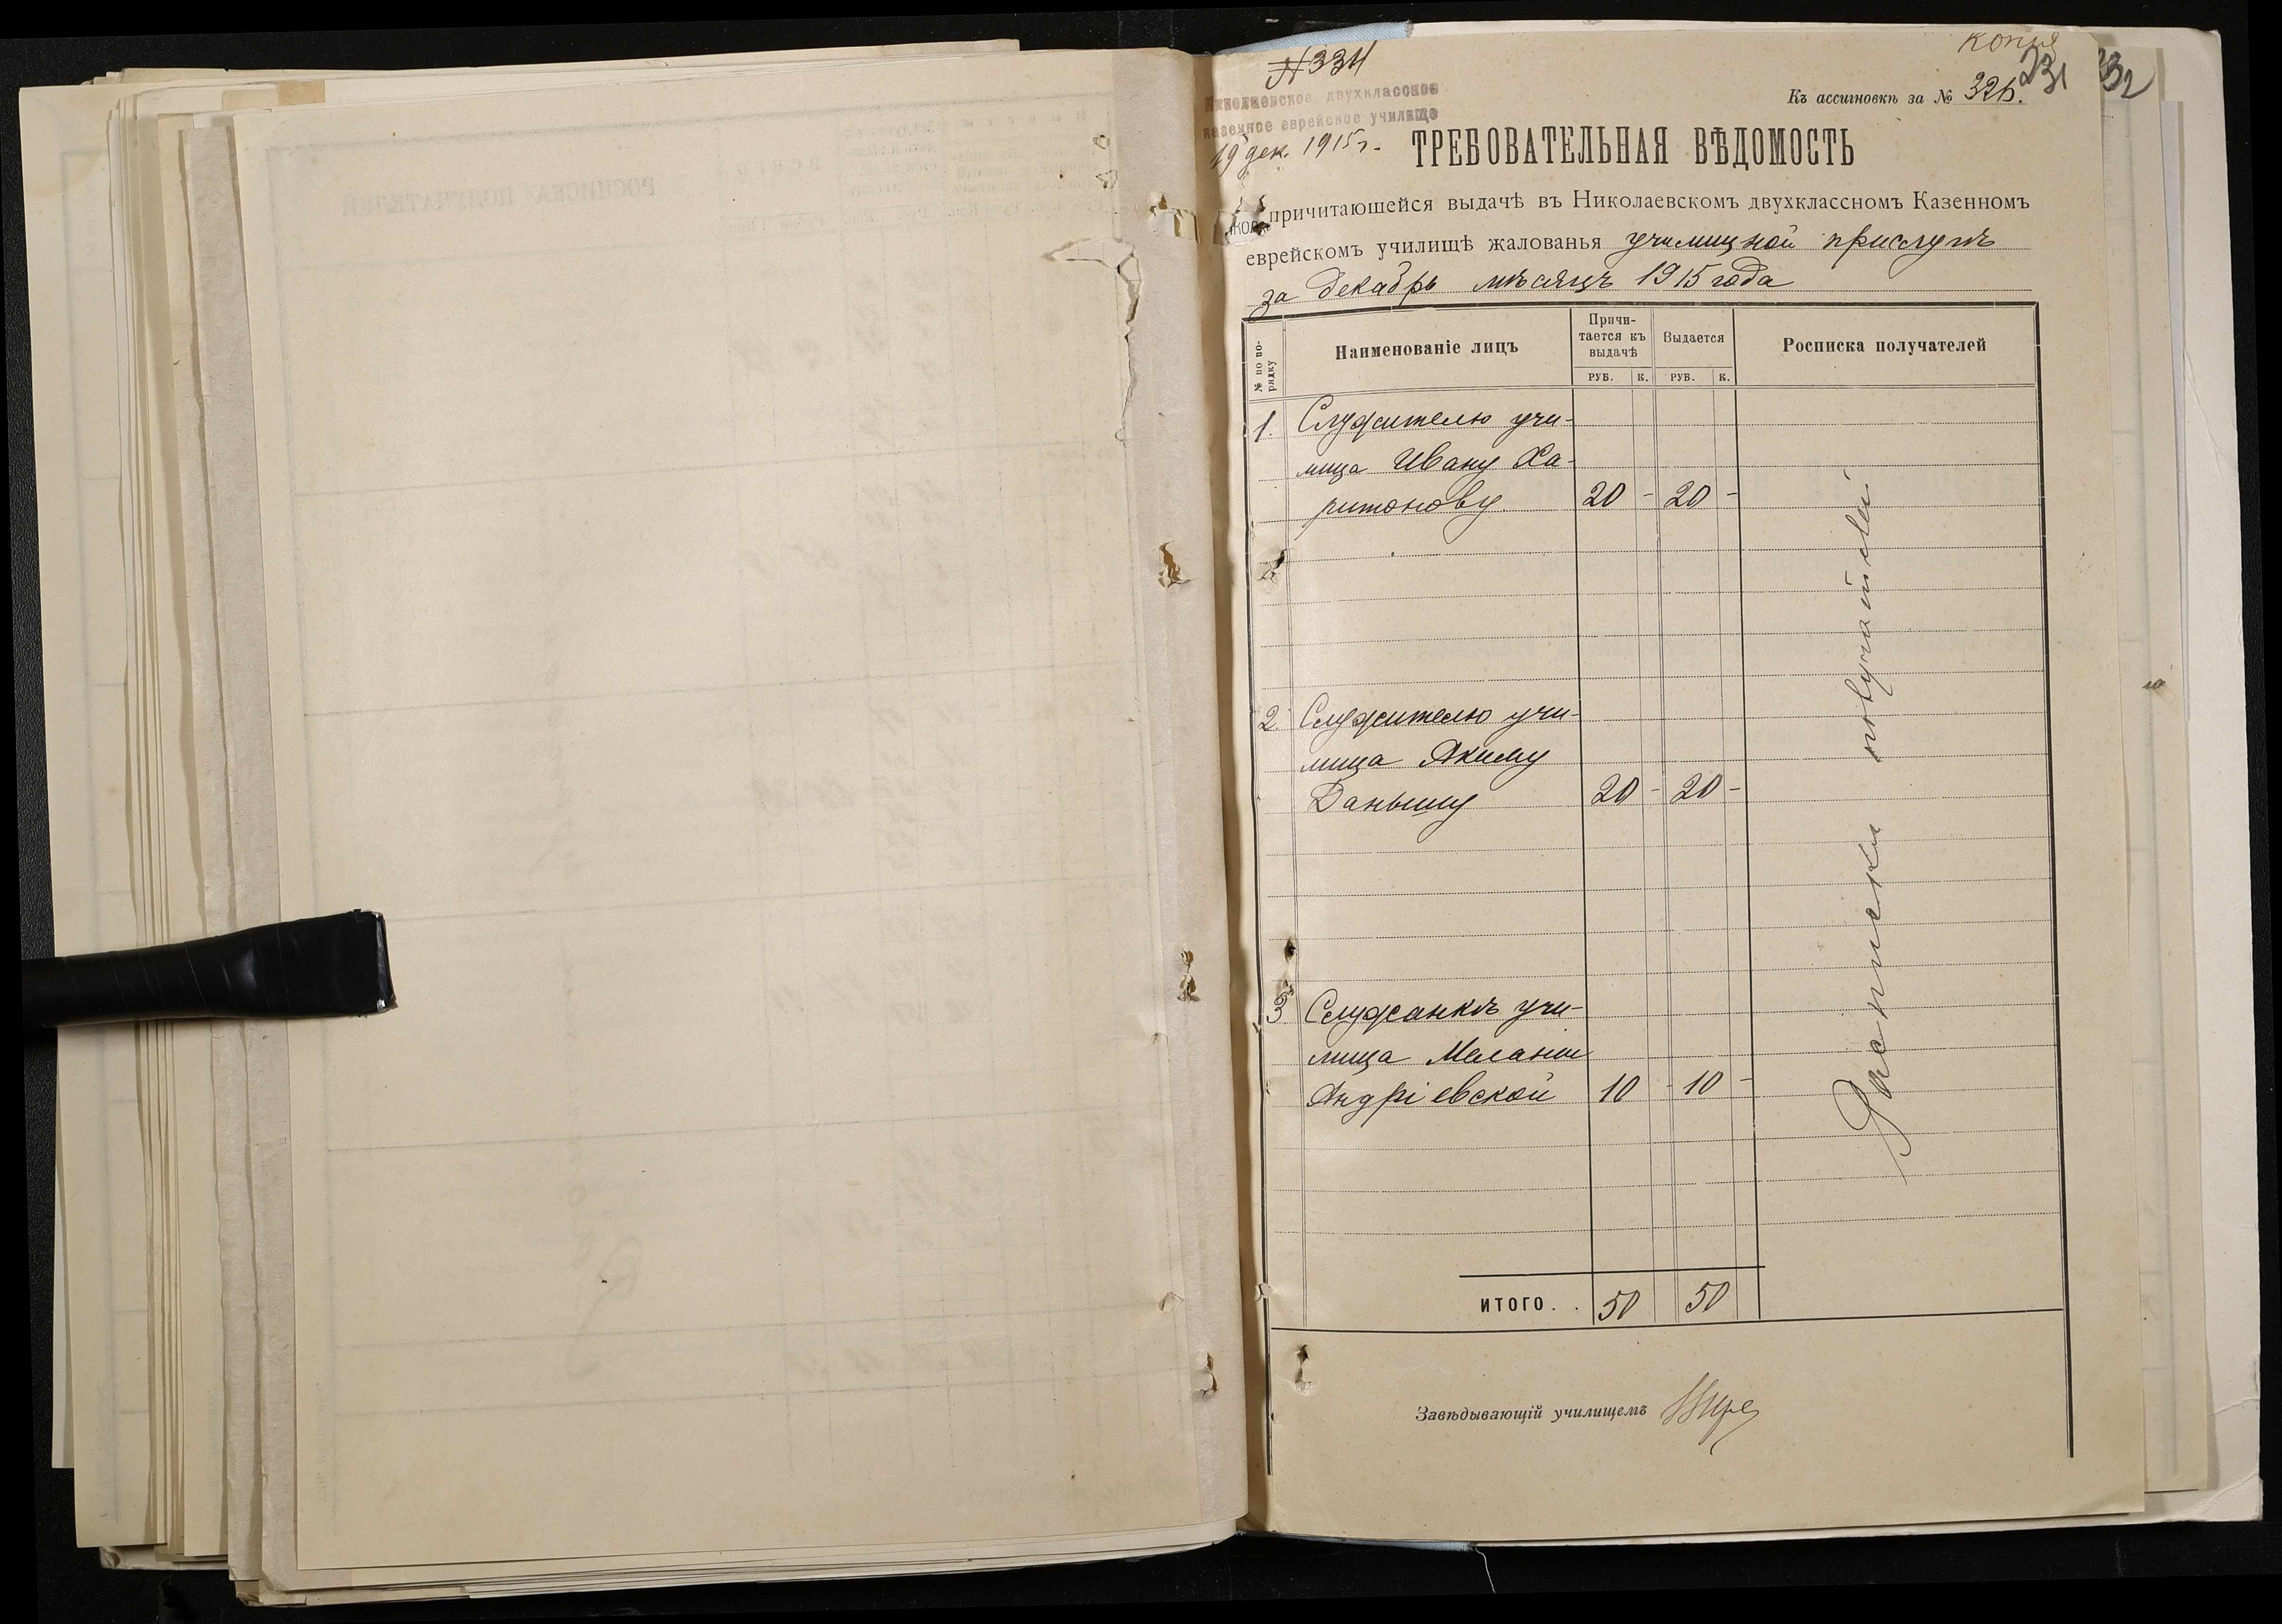 копія
231
232
№ 334
Николаевское двухклассное
казенное еврейское училище
19 дек. 1915 г.
Къ ассигновкѣ за № 326.
ТРЕБОВАТЕЛЬНАЯ ВѢДОМОСТЬ
причитающейся выдачѣ въ Николаевскомъ двухклассномъ Казенномъ
еврейскомъ училищѣ жалованья училищной прислугѣ
за декабрь мѣсяцъ 1915 года
№ по порядку Наименованіе лицъ Причитается къ выдачѣ Выдается Росписка получателей
РУБ. К. РУБ. К.
1. Служителю учи-
лища Ивану Ха-
ритонову. 20 - 20 -
2. Служителю учи-
лища Акиму
Даньшу 20 - 20 -
3 Служанкѣ учи-
лища Меланіи
Андріевской 10 - 10 -
Росписки получателей
ИТОГО. . 50 50
Завѣдывающій училищемъ